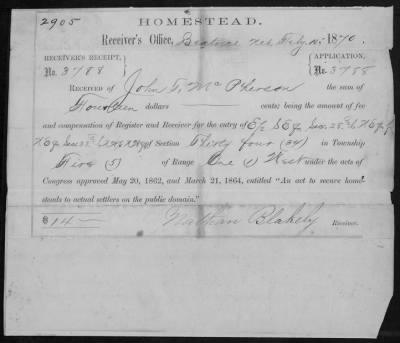 2905 HOMESTEAD.
Receiver's Office, Beatrice Neb. 1870.
RECEIVER'S RECEIPT, APPLICATION,
No. 3788 No. 3788
RECEIVED OF John T. McPherson the sum
of Fourteen dollars ——— cents; being the amount of fee
and compensation of Register and Receiver for the entry of E/2 SE4 Sec. 28 & NE4 of
NE4 Sec. 33 & of Section Thirty four (34) in Township
Five (5) of Range One (1) West under the acts of
Congress approved May 20, 1862, and March 21, 1864, entitled "An act to secure home-
steads to actual settlers on the public domain."
$14 — Nathan Blakely Receiver.